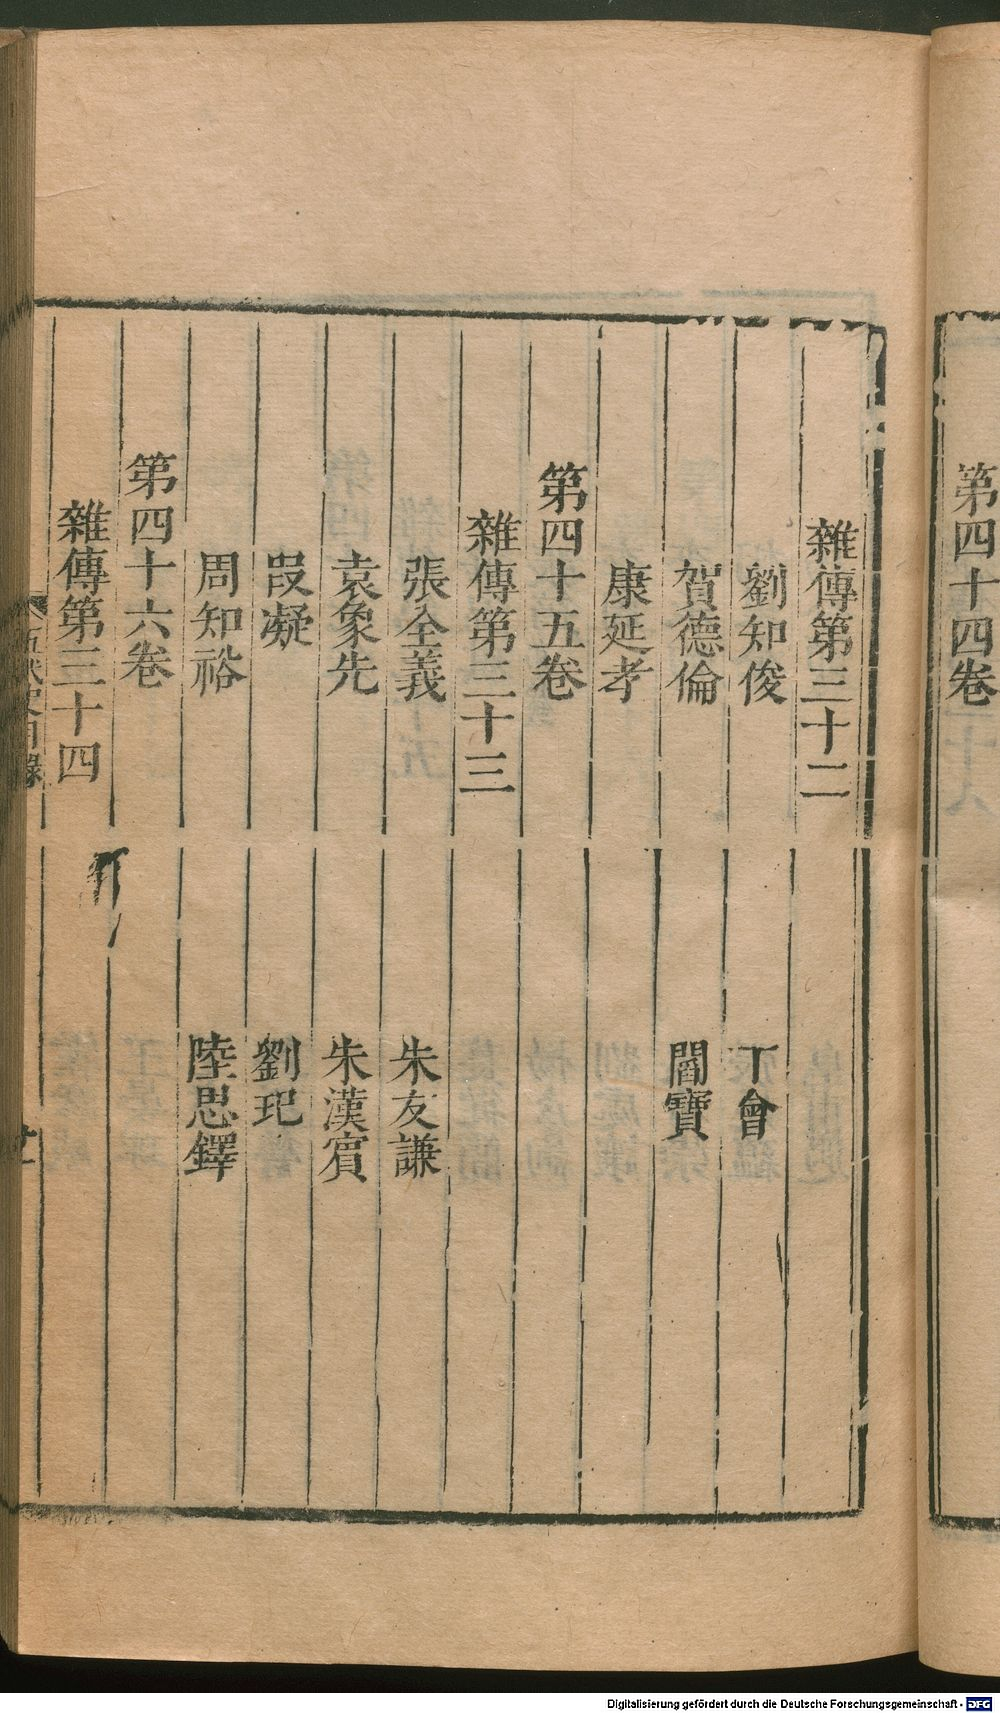 第四十四卷
雜傳第三十二
劉知俊 丁會
賀德倫 閻寶
康延孝
第四十五卷
雜傳第三十三
張全義 朱友謙
袁象先 朱漢賔
段凝 劉玘
周知裕 陸思鐸
第四十六卷
雜傳第三十四
五代史目錄
Digitalisierung gefördert durch die Deutsche Forschungsgemeinschaft - DFG